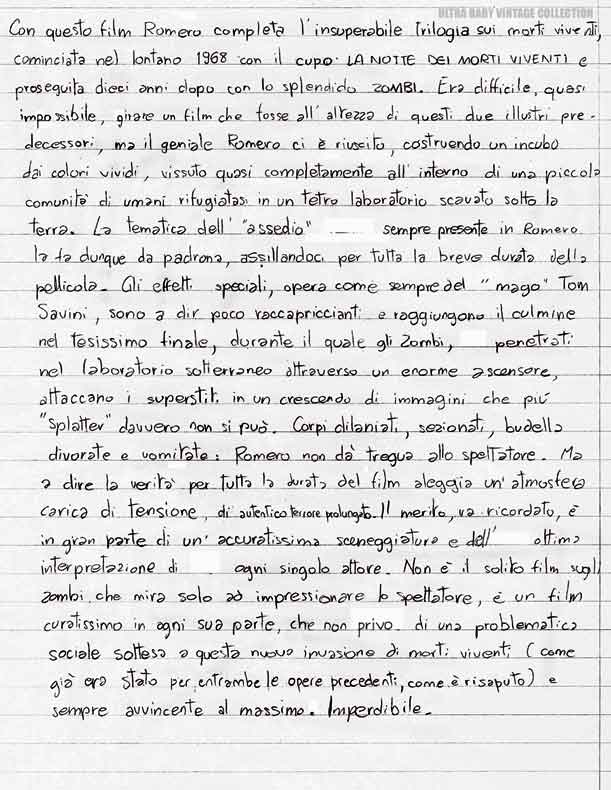 ULTRA BABY VINTAGE COLLECTION
Con questo film Romero completa l'insuperabile trilogia sui morti viventi,
cominciata nel lontano 1968 con il cupo LA NOTTE DEI MORTI VIVENTI e
proseguita dieci anni dopo con lo splendido ZOMBI. Era difficile, quasi
impossibile, girare un film che fosse all'altezza di questi due illustri pre-
decessori, ma il geniale Romero ci è riuscito, costruendo un incubo
dai colori vividi, vissuto quasi completamente all'interno di una piccola
comunità di umani rifugiatasi in un tetro laboratorio scavato sotto la
terra. La tematica dell' "assedio" sempre presente in Romero
la fa dunque da padrona, assillandoci per tutta la breve durata della
pellicola. Gli effetti speciali, opera come sempre del "mago" Tom
Savini, sono a dir poco raccapriccianti e raggiungono il culmine
nel tesissimo finale, durante il quale gli Zombi, penetrati
nel laboratorio sotterraneo attraverso un enorme ascensore,
attaccano i superstiti in un crescendo di immagini che più
"splatter" davvero non si può. Corpi dilaniati, sezionati, budella
divorate e vomitate: Romero non dà tregua allo spettatore. Ma
a dire la verità per tutta la durata del film aleggia un'atmosfera
carica di tensione, di autentico terrore prolungato. Il merito, va ricordato, è
in gran parte di un'accuratissima sceneggiatura e dell' ottima
interpretazione di ogni singolo attore. Non è il solito film sugli
zombi che mira solo ad impressionare lo spettatore, è un film
curatissimo in ogni sua parte, che non privo di una problematica
sociale sottesa a questa nuova invasione di morti viventi (come
già era stato per entrambe le opere precedenti, come è risaputo) e
sempre avvincente al massimo. Imperdibile.